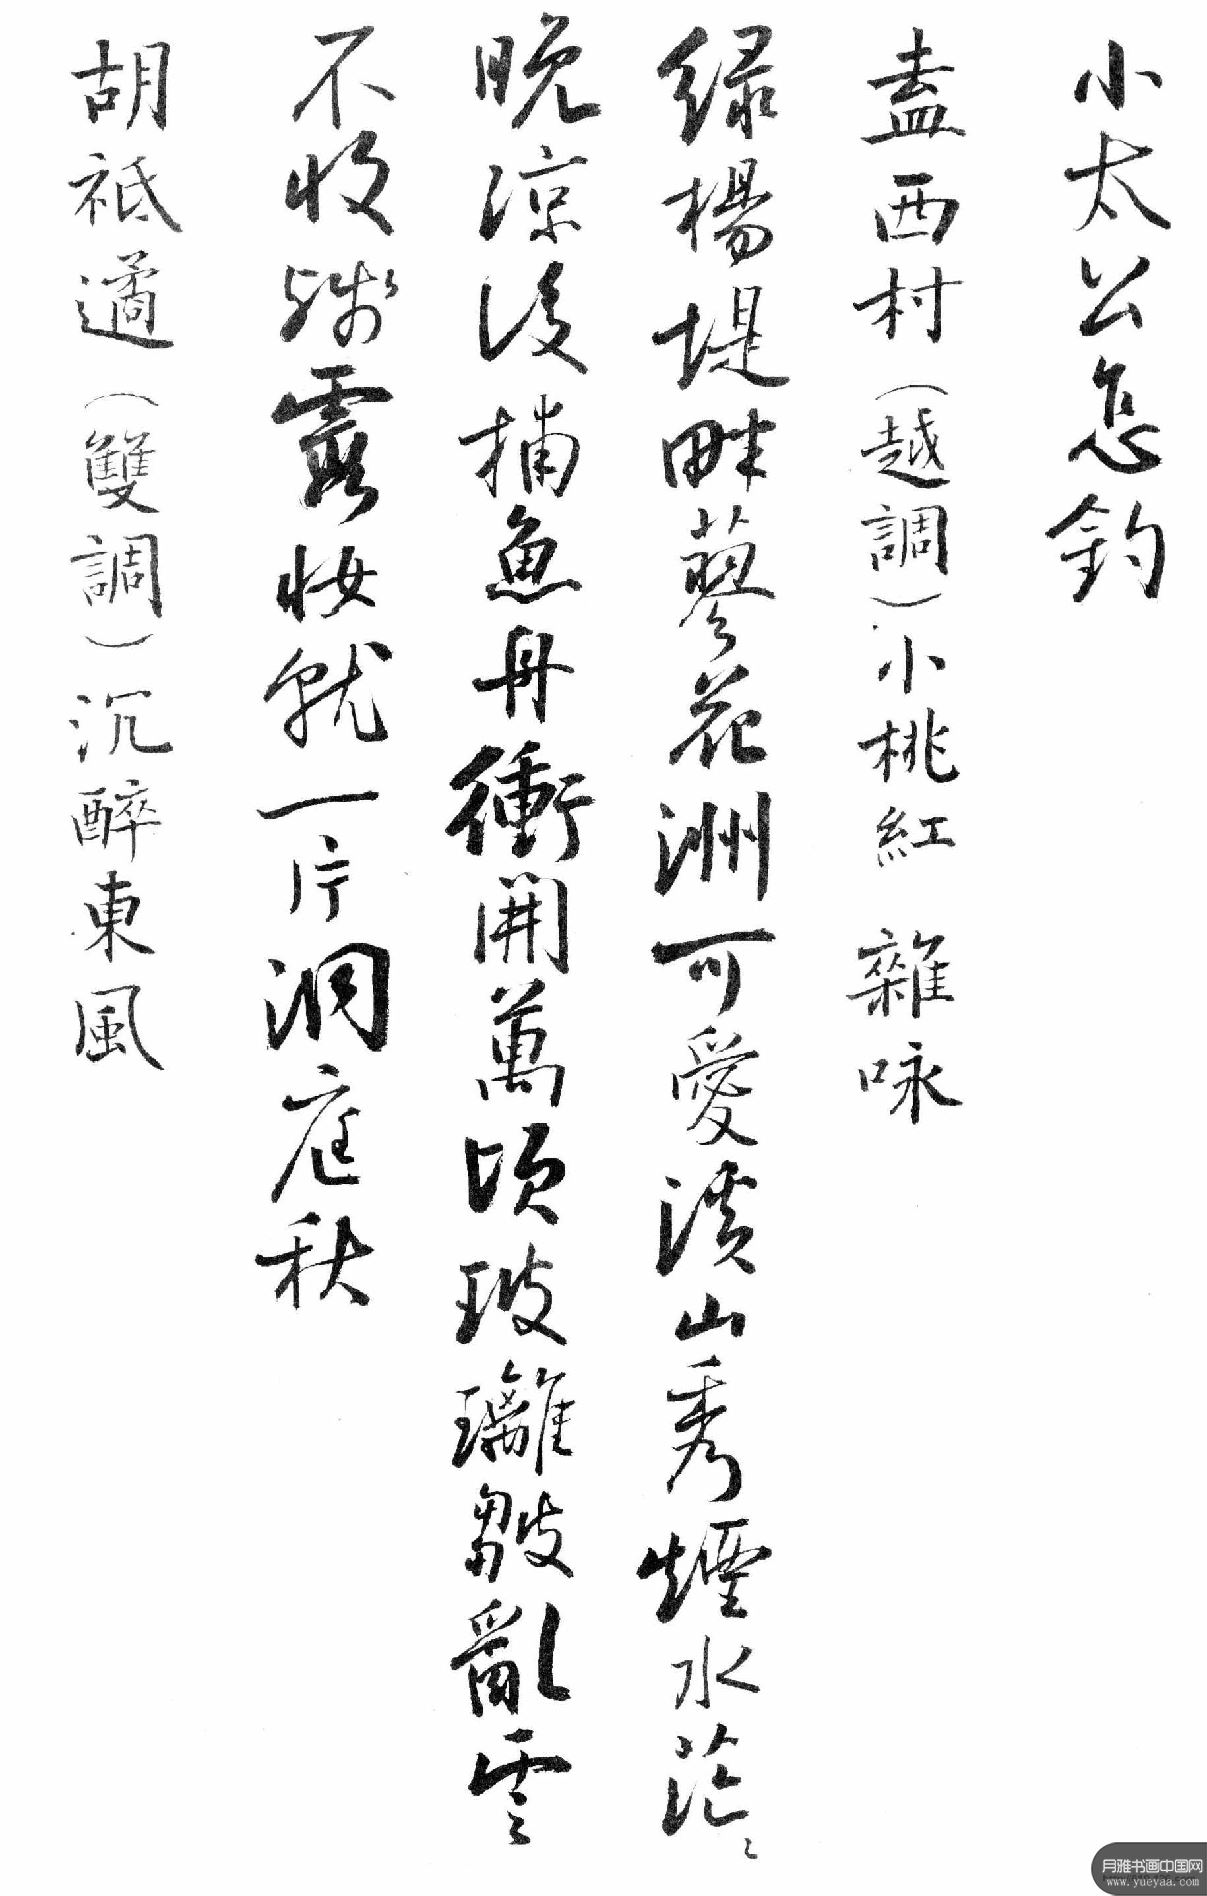 小太公怎釣
盍西村（越調）小桃紅 雜咏
緑楊堤畔蓼花洲可愛溪山秀煙水茫〻
晚涼後捕魚舟衝開萬頃玻璃皺亂雲
不收殘霞妝就一片洞庭秋
胡祗遹（雙調）沉醉東風
月雅书画中国网
www.yueyaa.com